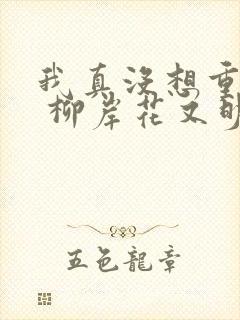 我真没想重
柳岸花又明
五色龍章